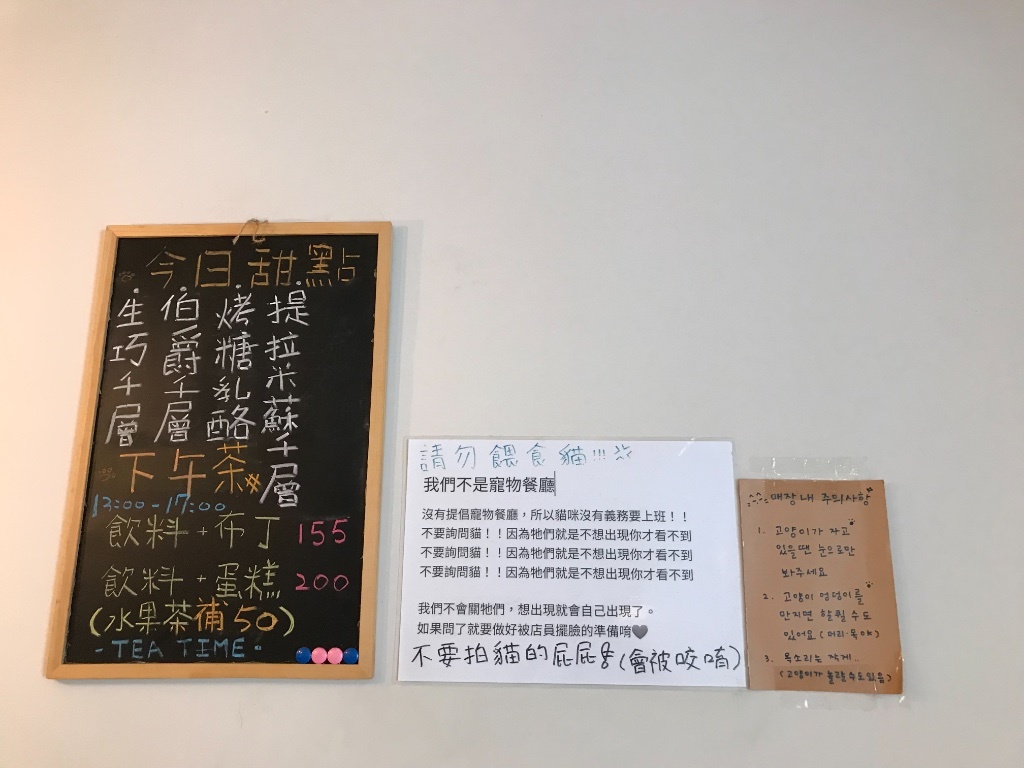 今日甜點
提拉米蘇千層
烤糖乳酪
伯爵千層
生巧千層
下午茶
13:00-17:00
飲料+布丁 155
飲料+蛋糕 200
(水果茶補50)
-TEA TIME.
請勿餵食貓!!!
我們不是寵物餐廳
沒有提倡寵物餐廳，所以貓咪沒有義務要上班！！
不要詢問貓！！因為牠們就是不想出現你才看不到
不要詢問貓！！因為牠們就是不想出現你才看不到
不要詢問貓！！因為牠們就是不想出現你才看不到
我們不會關牠們，想出現就會自己出現了。
如果問了就要做好被店員擺臉的準備唷🖤
不要拍貓的屁屁(會被咬唷)
매장 내 주의사항
1. 고양이가 자고
있을땐 눈으로만
봐주세요
2. 고양이 엉덩이를
만지면 할퀼 수도
있어요 (머리·목야)
3. 목소리는 작게..
(고양이가 놀랄 수도 있음)